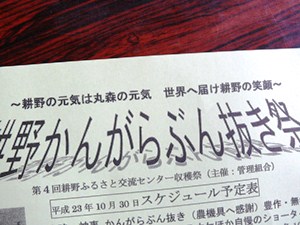 ～耕野の元気は丸森の元気　世界へ届け耕野の笑顔～
耕野かんがらぶん抜き祭
第４回耕野ふるさと交流センター収穫祭（主催：管理組合）
平成 23 年 10 月 30 日スケジュール予定表
かんがらぶん抜き（農機具へ感謝）豊作・無
ほか自慢のショータ